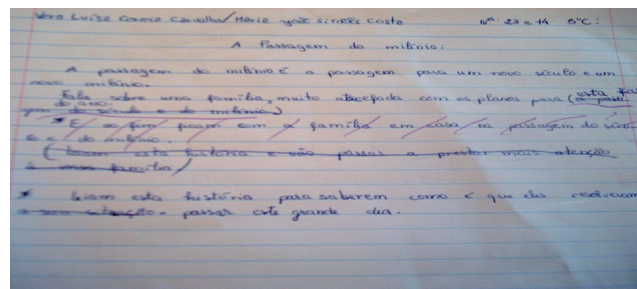 Vera Luísa Correia Carvalho/Maria yoão simões Costa Nos: 27 e 14 5ºC:
A Passagem do milénio:
A passagem do milénio é a passagem para um novo século e um
novo milénio.
Fala sobre uma família, muito atarefada com os planos para (a passa
esta passa
gem do século e do milénio.)
do ano.
* E no fim ficam com a família em casa na passagem do sécu
lo e do milénio.
(Leiam esta história e vão passar a prestar mais atenção
à sua família)
* Leiam esta história para saberem como é que eles resolveram
passar este grande dia.